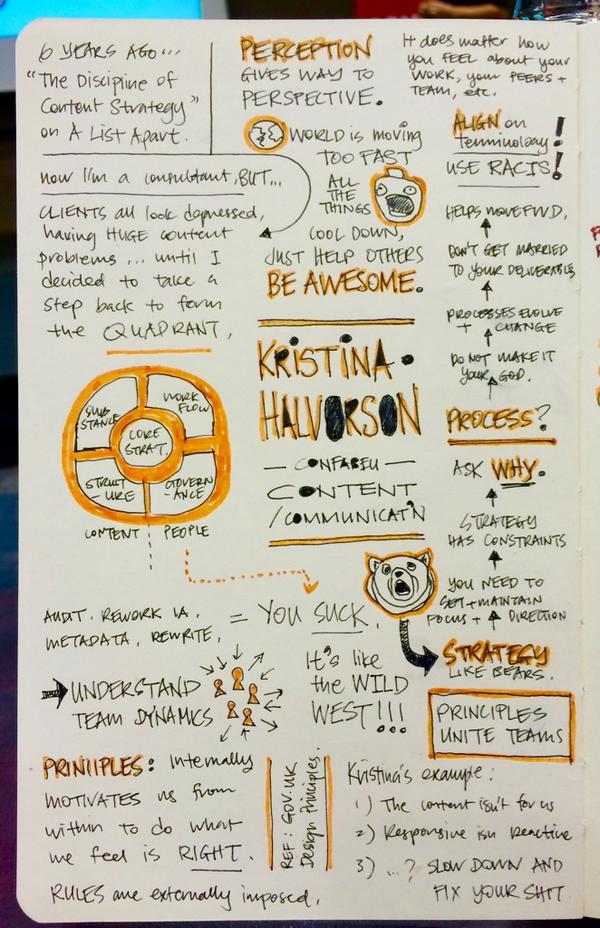 6 YEARS AGO...
"The Discipline of
Content Strategy"
on A List Apart.
now I'm a consultant, BUT...
CLIENTS all look depressed,
having HUGE content
problems... until I
decided to take a
step back to form
the QUADRANT.
SUB
STANCE
WORK
FLOW
CORE
STRAT.
STRUCT
-URE
GOVERN
-ANCE
CONTENT
PEOPLE
AUDIT. REWORK IA.
METADATA. REWRITE.
= YOU SUCK.
UNDERSTAND
TEAM DYNAMICS
It's like
the WILD
WEST!!!
PRINCIPLES: Internally
MOTIVATES us from
within to do what
we feel is RIGHT.
RULES are externally imposed.
REF: GOV.UK
Design Principles.
PERCEPTION
GIVES WAY TO
PERSPECTIVE.
WORLD is moving
TOO FAST
ALL
THE
THINGS
COOL DOWN,
JUST HELP OTHERS
BE AWESOME.
KRISTINA
HALVORSON
— CONFAB EU —
CONTENT
/COMMUNICAT'N
It does matter how
you FEEL about your
WORK, your PEERS +
TEAM, etc.
ALIGN on
terminology!
USE RACIS!
HELPS MOVE FWD.
DON'T GET MARRIED
TO YOUR DELIVERABLES
PROCESSES EVOLVE
+ CHANGE
DO NOT MAKE IT
YOUR GOD.
PROCESS?
ASK WHY.
STRATEGY
HAS CONSTRAINTS
YOU NEED TO
SET + MAINTAIN
FOCUS + DIRECTION
STRATEGY
LIKE BEARS.
PRINCIPLES
UNITE TEAMS
Kristina's example:
1) The content isn't for us
2) Responsive isn Reactive
3) ...? SLOW DOWN AND
FIX YOUR SHIT.